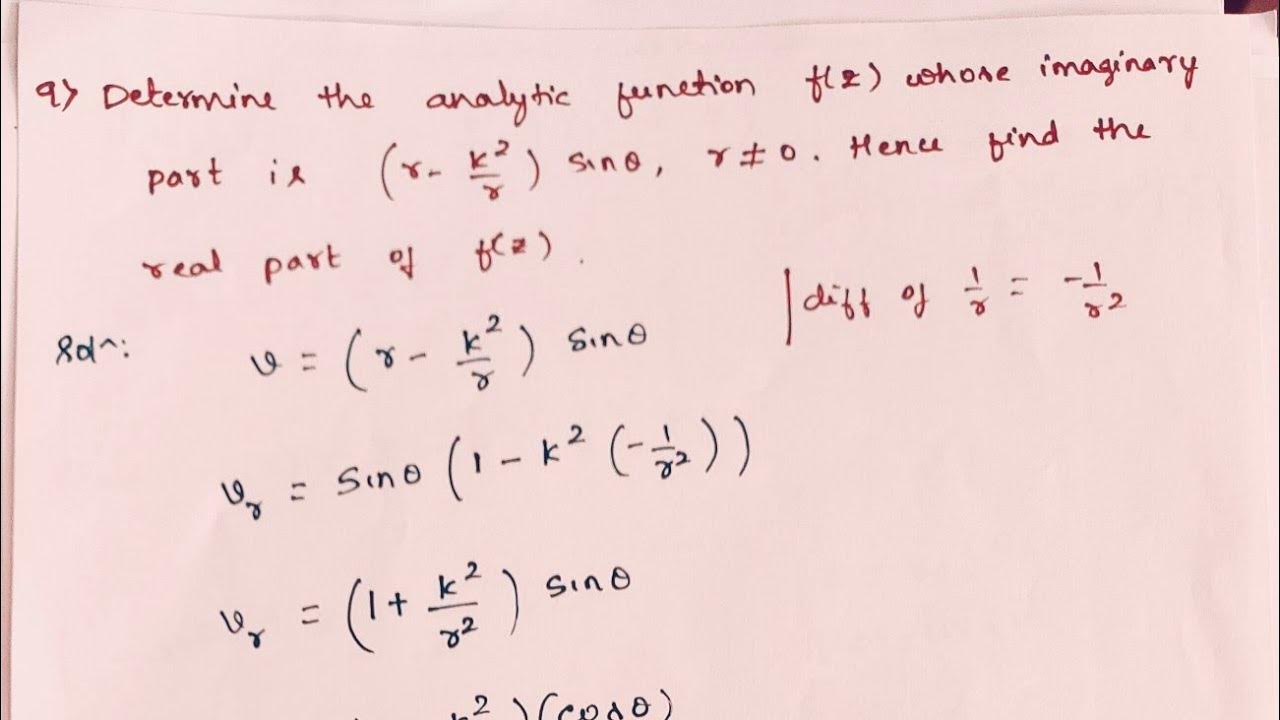 9) Determine the analytic function f(z) whose imaginary
part is (r - k²/r) sinθ, r ≠ 0. Hence find the
real part of f(z).
| diff of 1/r = -1/r²
Solⁿ: v = (r - k²/r) sinθ
v_r = sinθ (1 - k² (-1/r²))
v_r = (1 + k²/r²) sinθ
k² ) (cosθ)